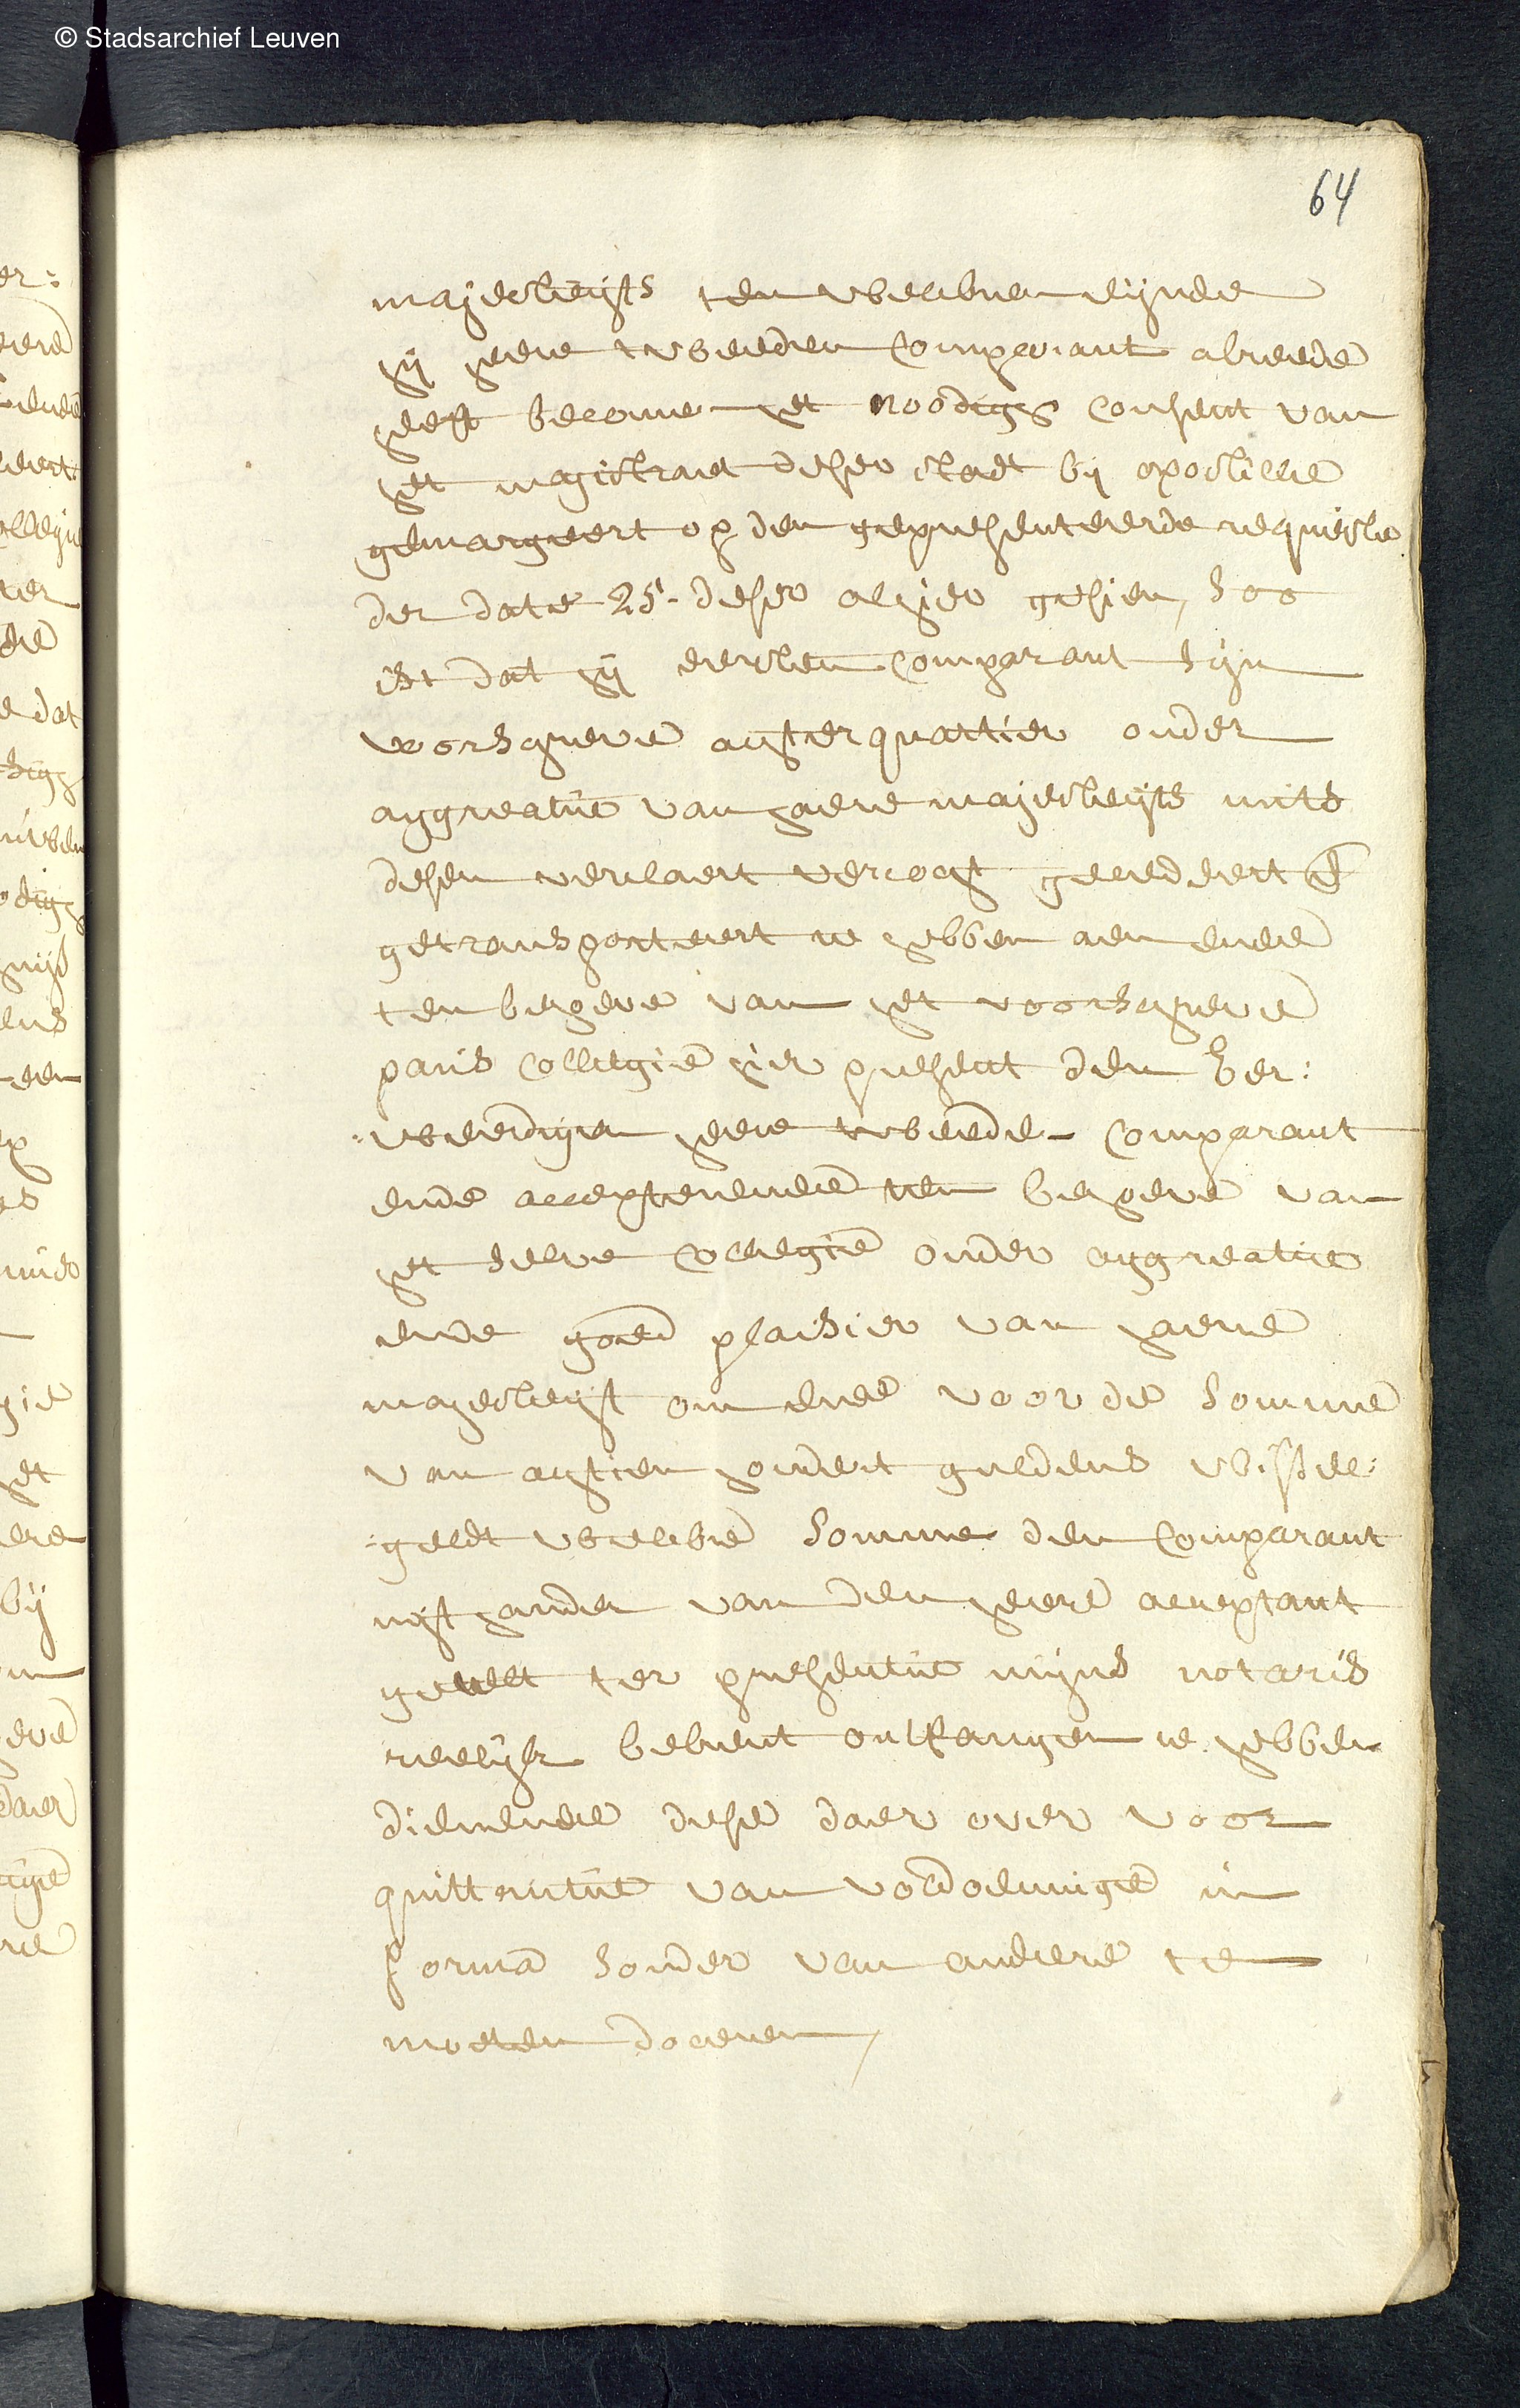 © Stadsarchief Leuven
64
majesteyts ten welcken eijnde
hij heere tweeden Comparant alreede
heeft becomen het noodigh consent van
het magistraet deser stadt bij apostille
gemargeert op den gepresenteerde requeste
der date 25. deser alhier gesien, soo
ist dat hij eersten Comparant sijn
voorschreve achterquartier onder
aggreatie van haere majesteyts mits
desen verclaert vercocht gecedeert e
getransporteert te hebben aen ende
ten behoeve van het voorschreve
paus Collegie hier present den Eer:
:weerdigen heere tweeden Comparant
ende accepterende ten behoeve van
het selve Collegie onder aggreatie
ende goed plaisier van haere
majesteyt om ende voor de somme
van achtien hondert guldens wissel:
:geldt welcke somme den Comparant
uyt handen van den heere acceptant
getelt ter presentie mijns notaris
reelijck bekent ontfangen te hebben
dienende dese daer over voor
quittentie van voldoeninge in
forma sonder van andere te
moeten doceren,